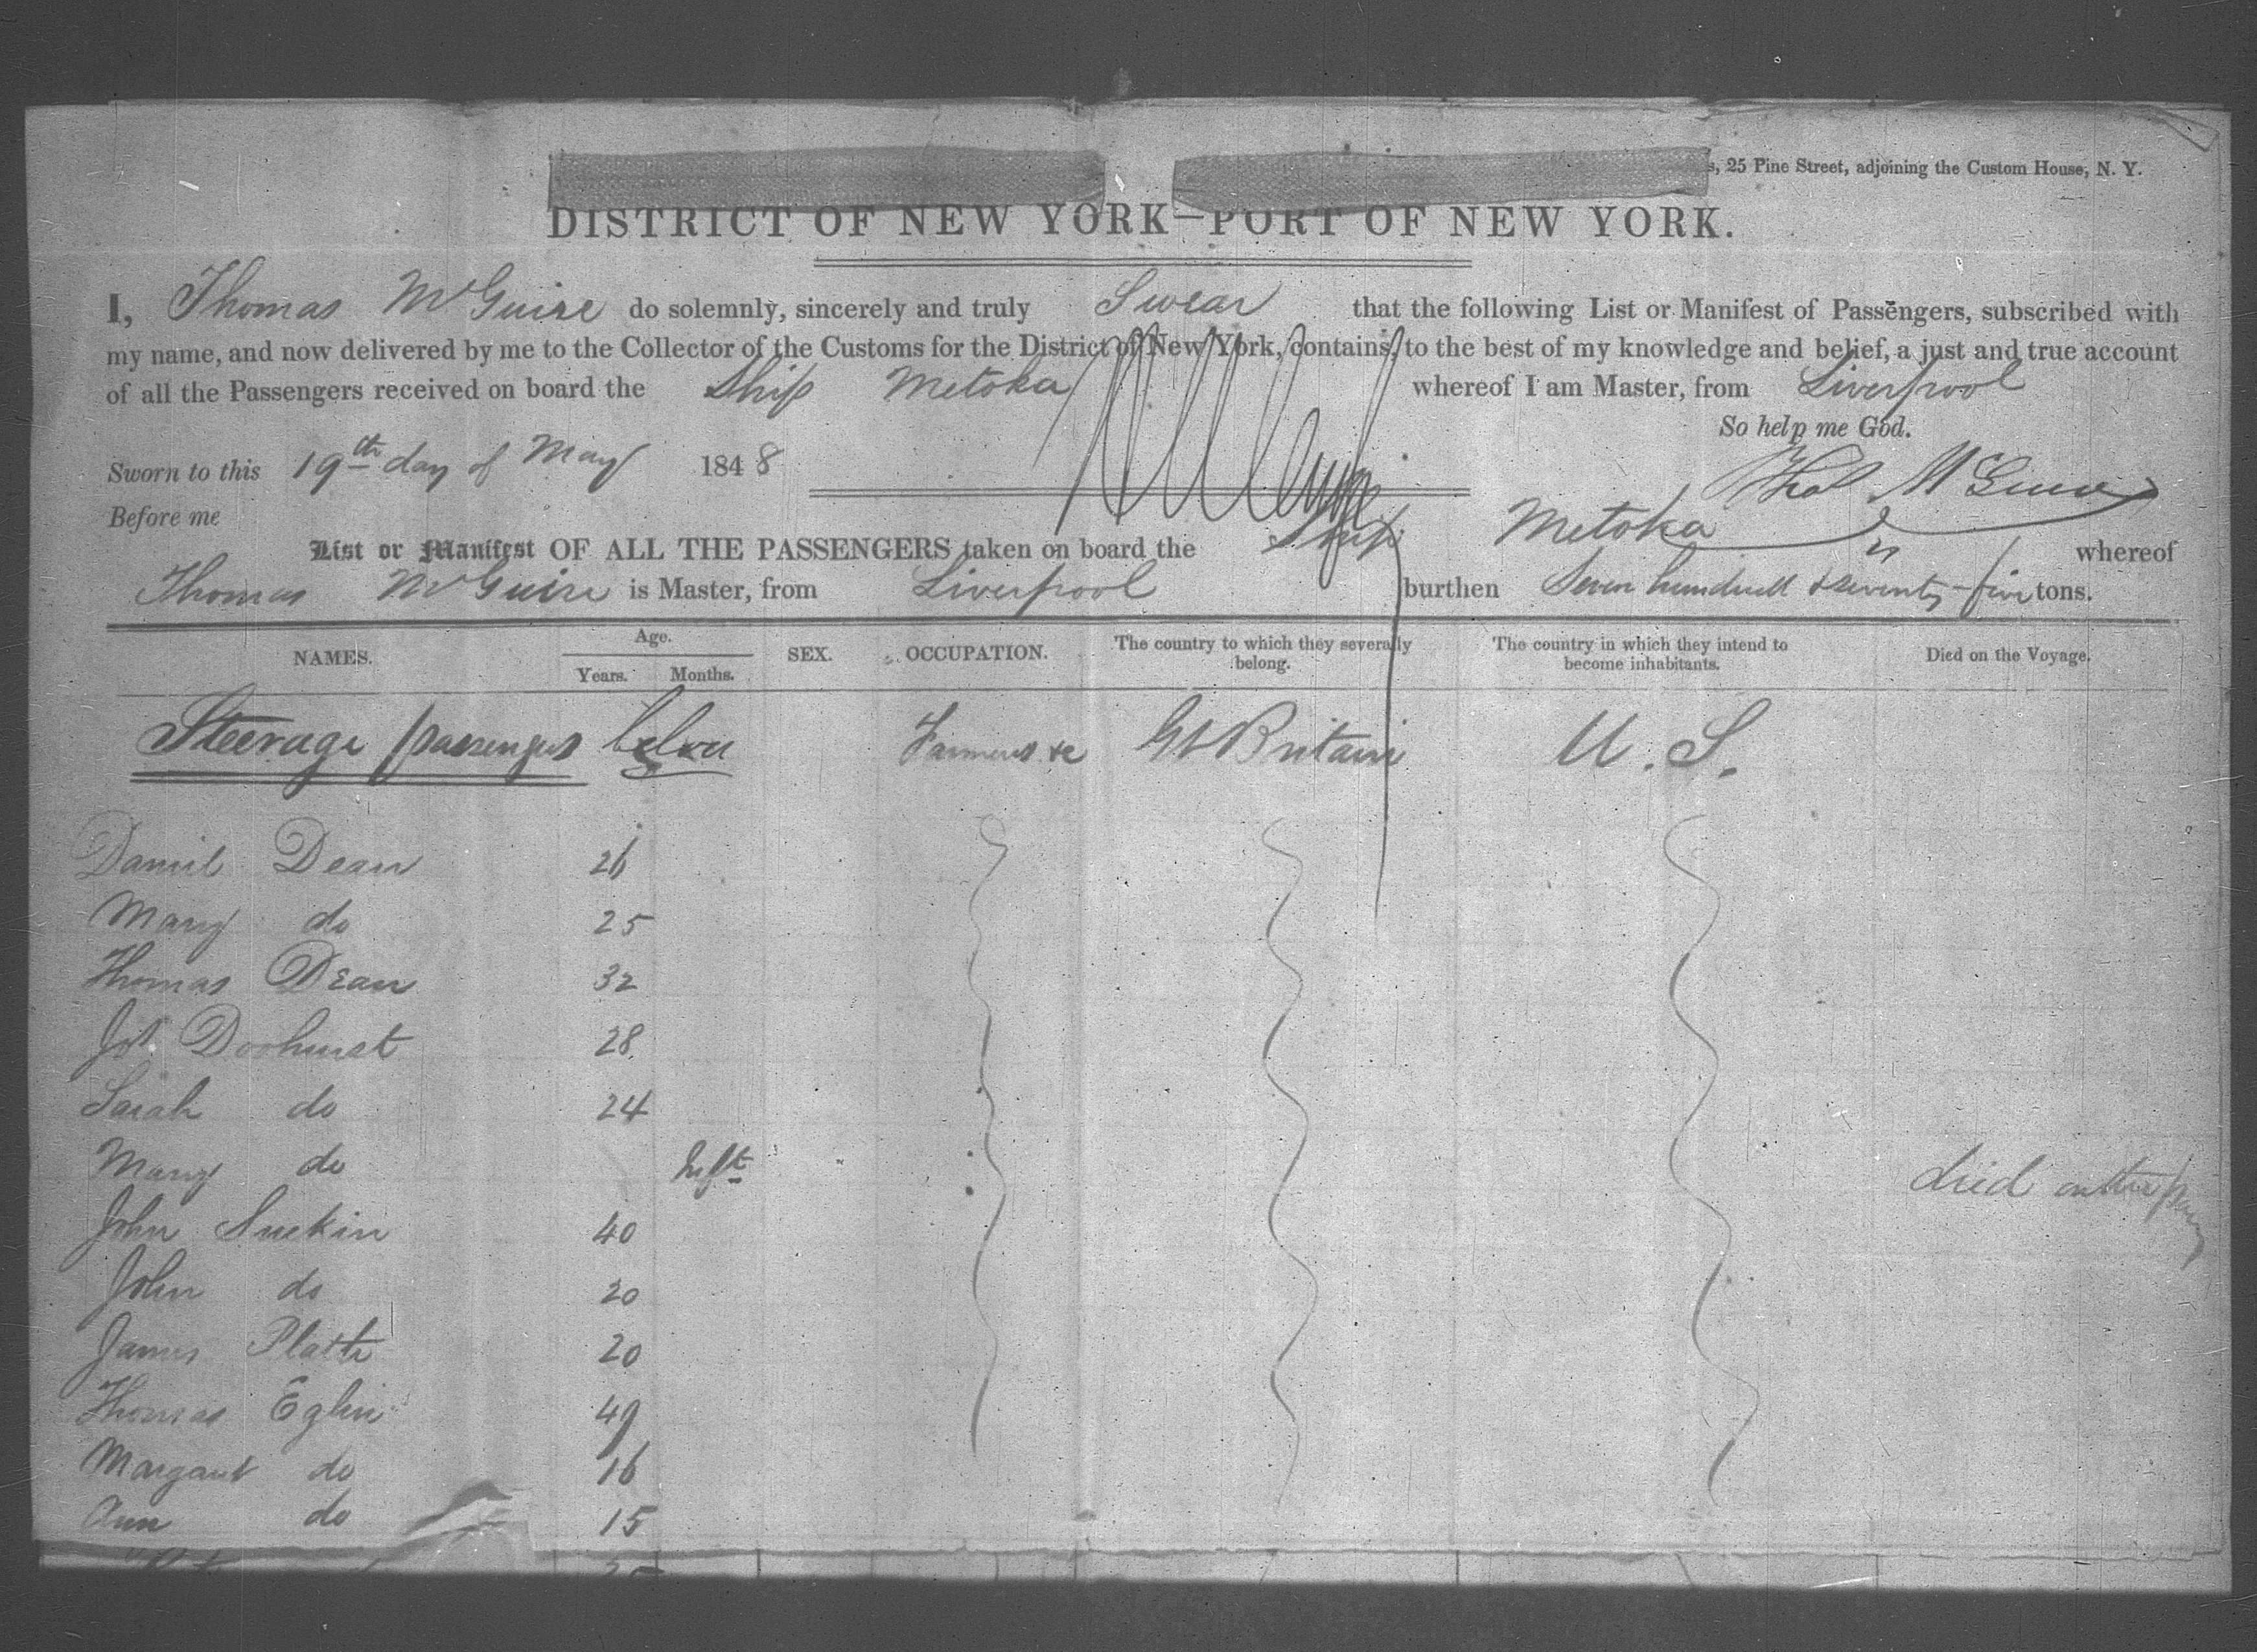 s, 25 Pine Street, adjoining the Custom House, N. Y.
DISTRICT OF NEW YORK—PORT OF NEW YORK.
I, Thomas McGuire do solemnly, sincerely and truly Swear that the following List or Manifest of Passengers, subscribed with
my name, and now delivered by me to the Collector of the Customs for the District of New York, contains, to the best of my knowledge and belief, a just and true account
of all the Passengers received on board the Ship Metoka whereof I am Master, from Liverpool
So help me God.
Sworn to this 19th day of May 1848
Thos McGuire
Before me
List or Manifest OF ALL THE PASSENGERS taken on board the Ship Metoka whereof
Thomas McGuire is Master, from Liverpool burthen Seven hundred & seventy-five tons.
NAMES. Age. Years. Months. SEX. OCCUPATION. The country to which they severally belong. The country in which they intend to become inhabitants. Died on the Voyage.
Steerage passengers below Farmers &c Gt Britain U. S.
Daniel Dean 26
Mary do 25
Thomas Dean 32
Jos Doohurst 28
Sarah do 24
Mary do Inft died on the
John 40
John do 20
James Platt 20
Thomas Eglin 49
Margaret do 16
Ann do 15